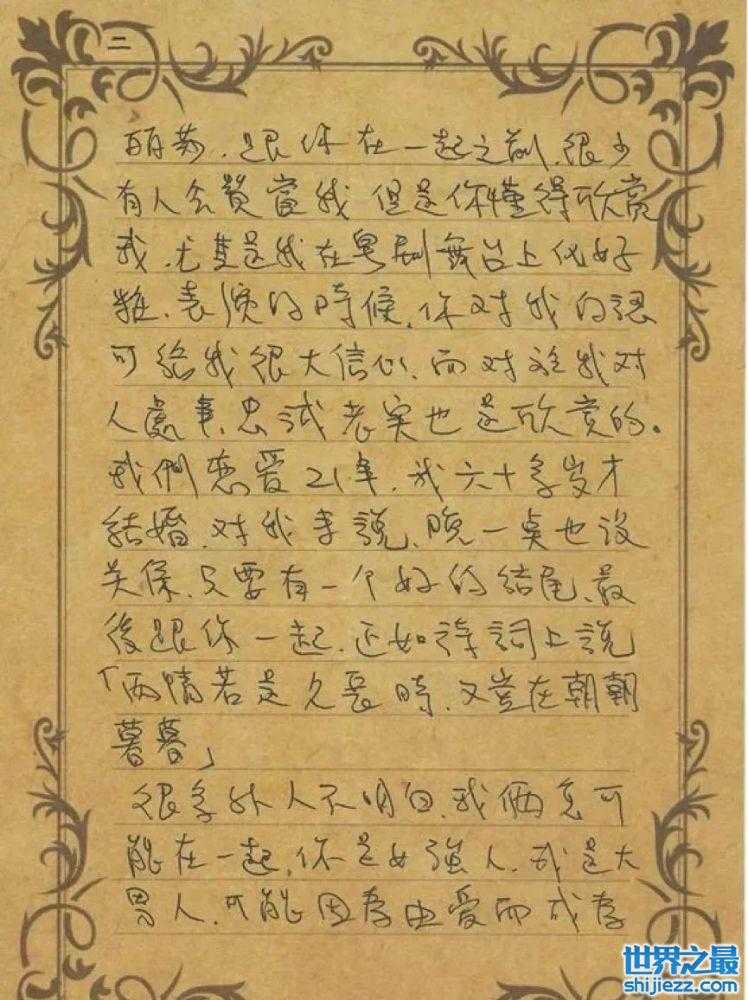 二
跟你在一起之前、很少
有人会 我 但是你懂得欣赏
我、尤其是我在粤剧舞台上化好
粧、表演的時候、你对我的認
可给我很大信心、而对於我对
人處事、忠誠老实也是欣赏的。
我們恋爱21年、我六十多岁才
結婚、对我来說、晚一点也没
关係、只要有一个好的结尾、最
後跟你一起、正如詩詞上說
「两情若是久長時、又豈在朝朝
暮暮」
很多外人不明白、我俩怎可
能在一起、你是女強人、我是大
男人、可能因為由爱而成為
世界之最
shijiezz.com